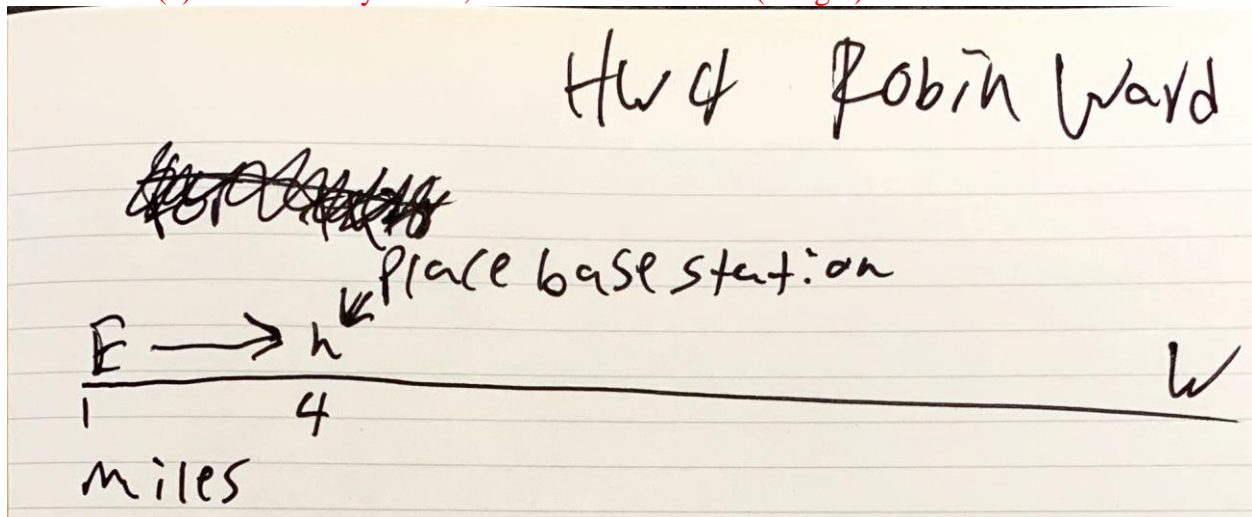 HW 4 Robin Ward
Place base station
E → h
W
1 4
miles